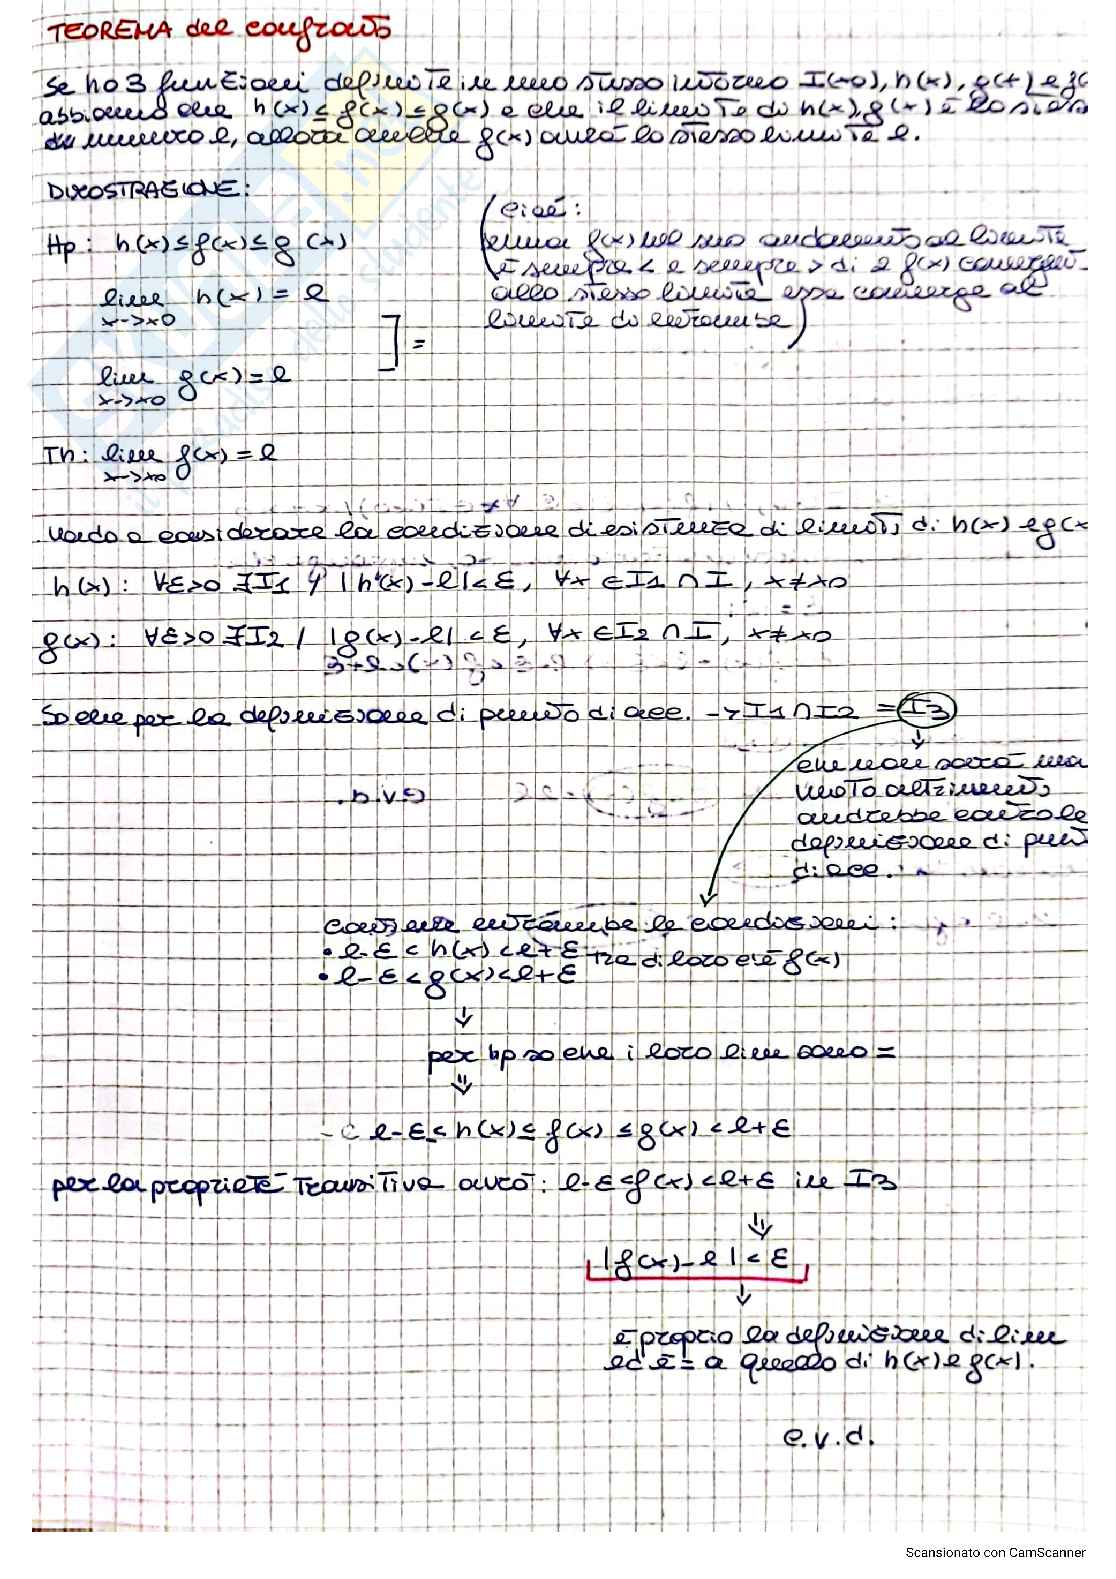 TEOREMA del confronto
Se ho 3 funzioni definite in uno stesso intorno I(x0), h(x), f(x) e g(
abbiamo che h(x) ≤ f(x) ≤ g(x) e che il limite di h(x), g(x) è lo stesso
numero l, allora anche f(x) avrà lo stesso limite l.
DIMOSTRAZIONE:
(cioè:
Hp: h(x) ≤ f(x) ≤ g(x)
f(x) nel suo andamento al limite
è sempre < e sempre > di 2 f(x)
lim h(x) = l
x->x0
allo stesso limite essa converge al
limite di entrambe)
] =
lim g(x) = l
x->x0
Th: lim f(x) = l
x->x0
Vado a considerare la condizione di esistenza di limiti di h(x) e g(x
h(x): ∀ε>0 ∃I1 / |h(x)-l| < ε, ∀x ∈ I1 ∩ I, x≠x0
g(x): ∀ε>0 ∃I2 / |g(x)-l| < ε, ∀x ∈ I2 ∩ I, x≠x0
So che per la definizione di punto di acc. -> I1 ∩ I2 = I3
↓
che non sarà mai
vuoto altrimenti
andrebbe contro la
definizione di punt
di acc.
contiene entrambe le condizioni:
• l-ε < h(x) < l+ε tra di loro c'è f(x)
• l-ε < g(x) < l+ε
⇓
per hp so che i loro lim sono =
⇓
l-ε < h(x) ≤ f(x) ≤ g(x) < l+ε
per la proprietà transitiva avrò: l-ε < f(x) < l+ε in I3
⇓
|f(x)-l| < ε
↓
è proprio la definizione di lim
ed è = a quello di h(x) e g(x).
c.v.d.
Scansionato con CamScanner